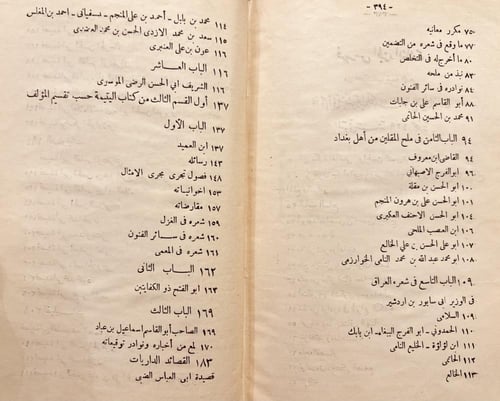 - ٣٩٤ -
٧٥ مكرر معانيه
٧٧ ما وقع في شعره من التضمين
٨٠ ما أخرج له في التخلص
٨٣ نبذ من ملحه
٨٤ نوادره في سائر الفنون
٨٨ أبو القاسم على بن جلبات
٩١ محمد بن الحسين الحاتمى
٩٤ الباب الثامن فى ملح المقلين من أهل بغداد
٩٤ القاضى ابن معروف
٩٦ ابو الفرج الاصبهانى
١٠٠ ابو الحسن بن مقلة
١٠١ ابو الحسن على بن هرون المنجم
١٠٤ ابو الحسن الاحنف العكبرى
١٠٦ ابن العصب الملحى
١٠٧ ابو على الحسن بن على الخالع
١٠٨ ابو محمد عبد الله بن محمد النامى الخوارزمى
١٠٩ الباب التاسع فى شعراء العراق
فى الوزير ابى سابور بن اردشير
١٠٩ السلامى
١١٠ الحمدونى - ابو الفرج الببغاء - ابن بابك
١١١ ابن لؤلؤة - الخليع النامى
١١٢ الحاتمى
١١٣ الخالع
١١٤ محمد بن بلبل - أحمد بن على المنجم - أحمد بن المغلس
١١٥ سعد بن محمد الازدى الحسن بن محمد
١١٦ عون بن على العنبرى
١١٦ الباب العاشر
١١٦ الشريف ابى الحسن الرضى الموسوى
١٣٧ أول القسم الثالث من كتاب اليتيمة حسب تقسيم المؤلف
١٣٧ الباب الأول
١٣٧ ابن العميد
١٤٣ رسائله
١٤٨ فصول تجرى مجرى الامثال
١٥٣ اخوانياته
١٥٧ مقارضاته
١٥٩ شعره فى الغزل
١٦٠ شعره فى سائر الفنون
١٦١ شعره فى المعمى
١٦٢ الباب الثانى
١٦٣ ابو الفتح ذو الكفايتين
١٦٩ الباب الثالث
١٦٩ الصاحب أبو القاسم اسماعيل بن عباد
١٧٠ لمع من أخباره ونوادر توقيعاته
١٨٣ القصائد الداريات
قصيدة ابى العباس الضبى